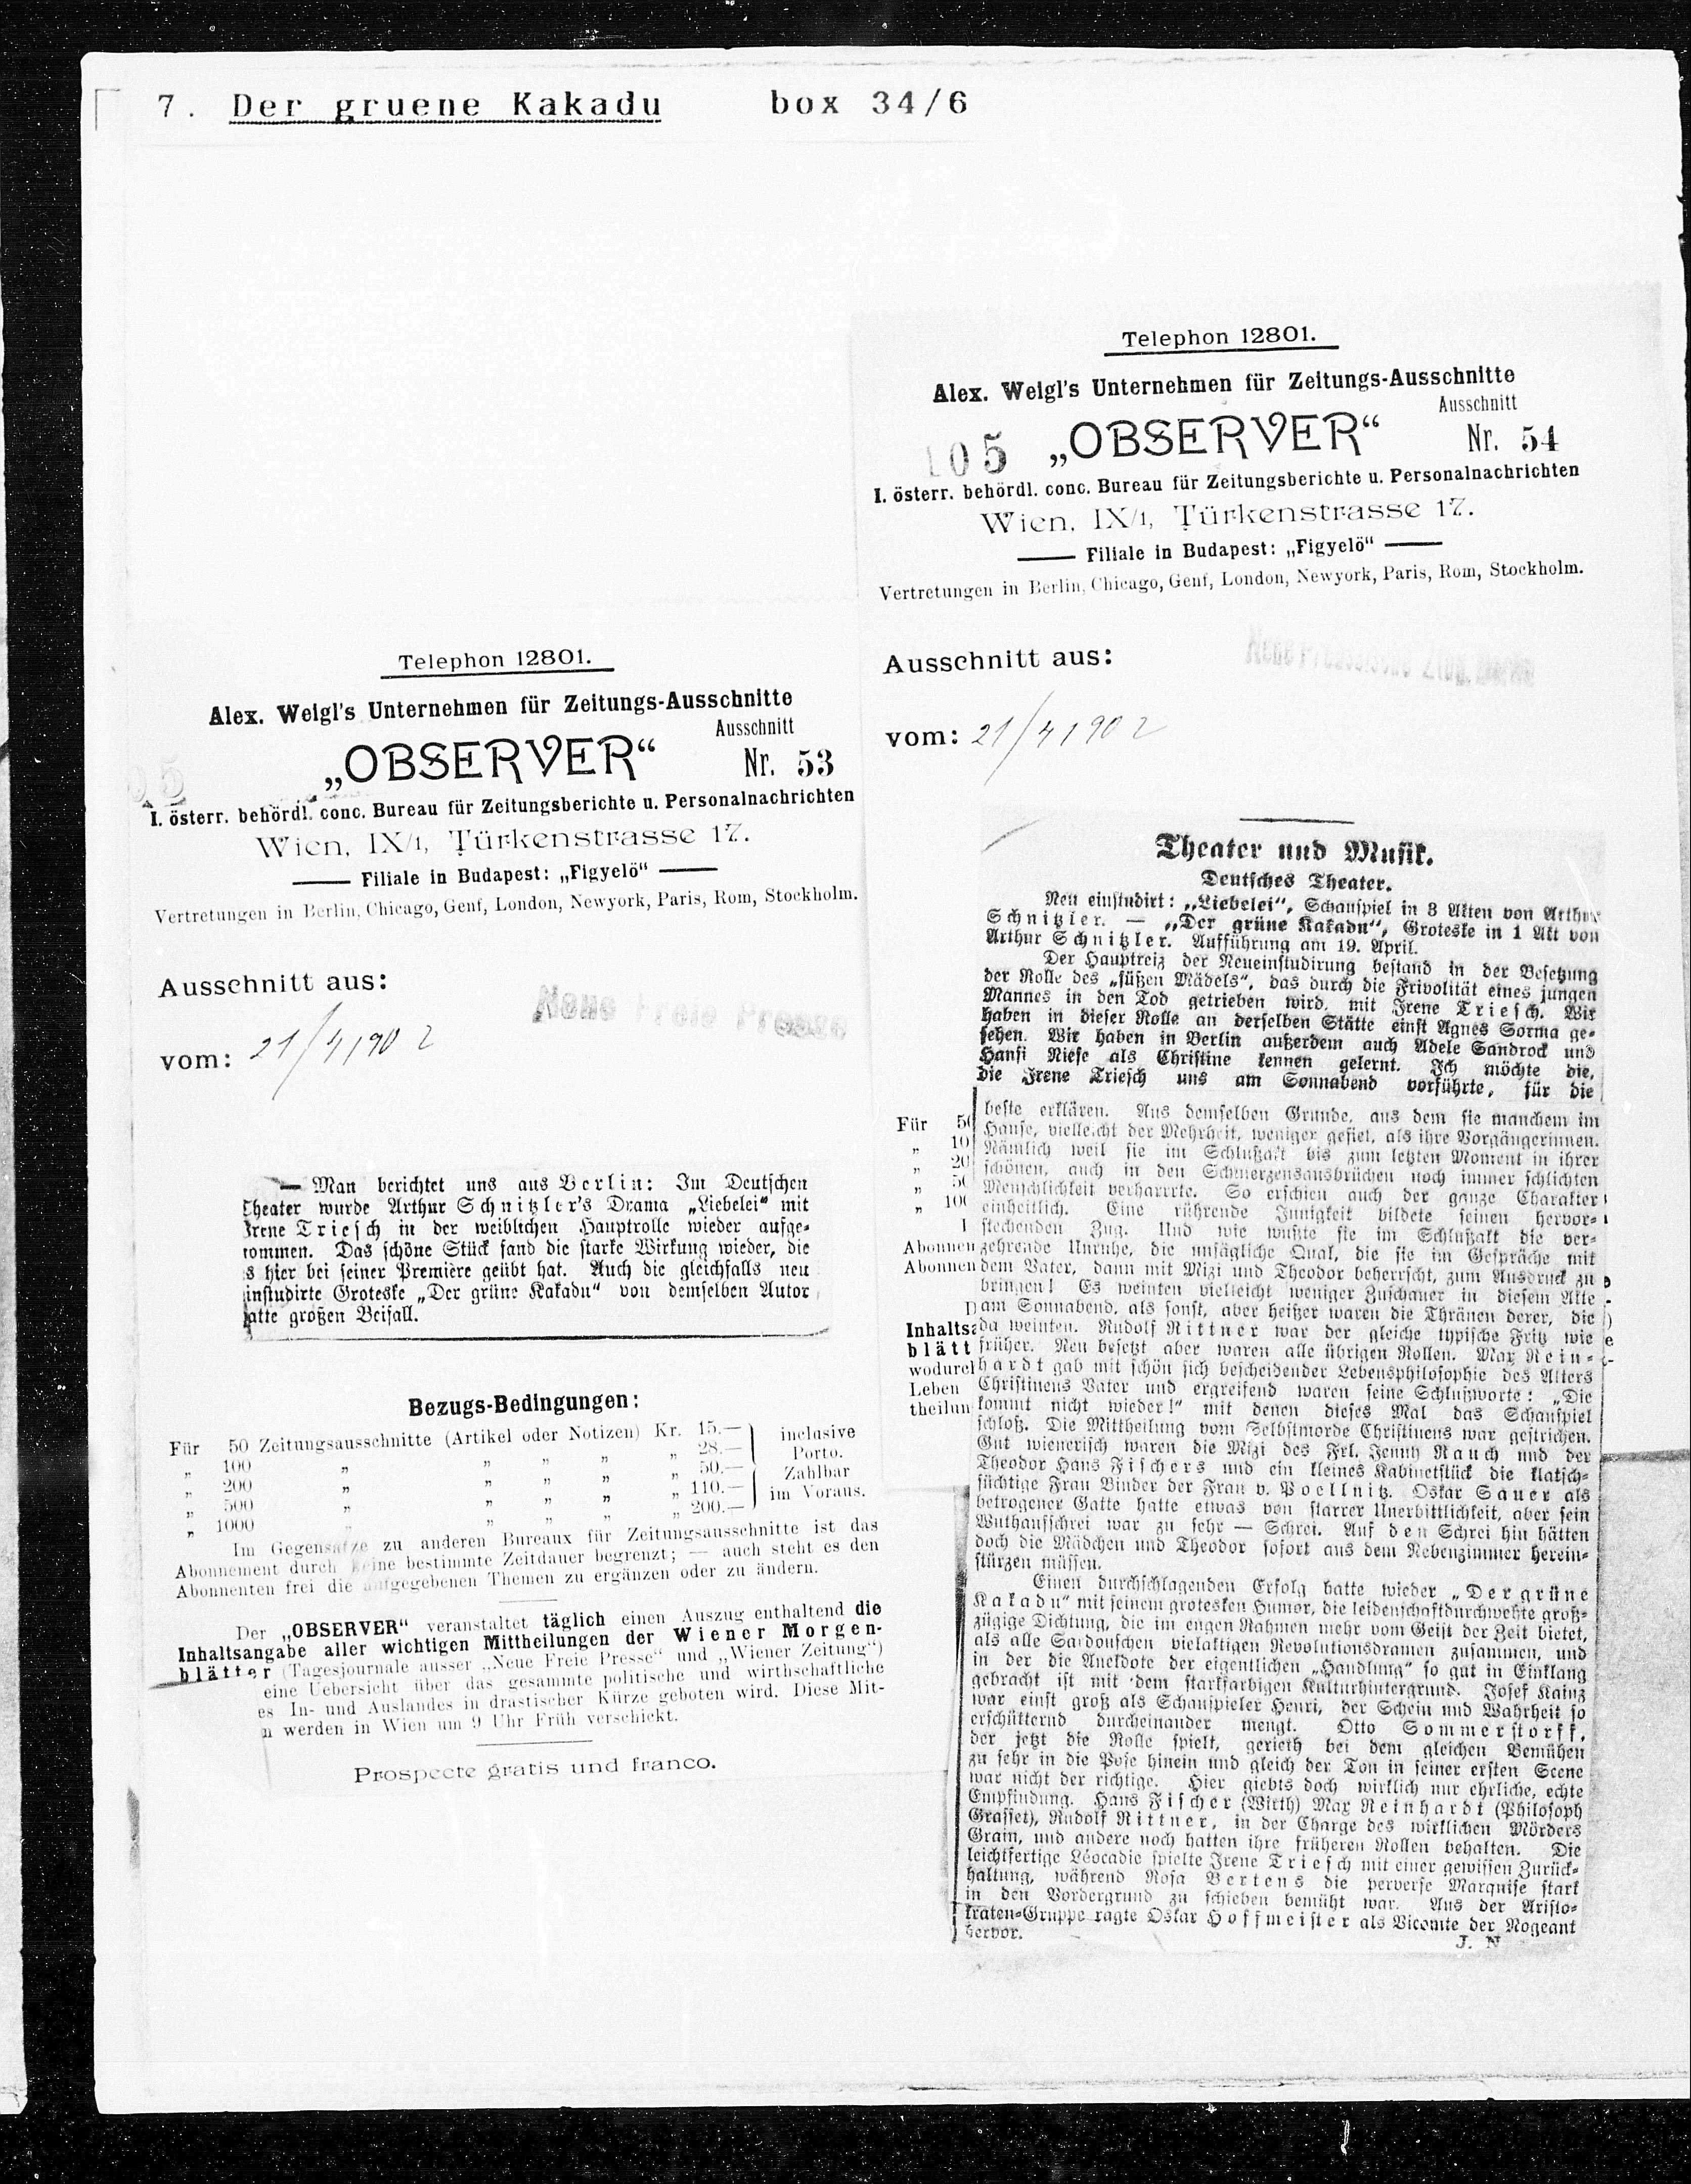 7. Der gruene Kakadu box 34/6
Telephon 12801.
Alex. Weigl's Unternehmen für Zeitungs-Ausschnitte
Ausschnitt
„OBSERVER“ Nr. 53
I. österr. behördl. conc. Bureau für Zeitungsberichte u. Personalnachrichten
Wien, IX/1, Türkenstrasse 17.
Filiale in Budapest: „Figyelő“
Vertretungen in Berlin, Chicago, Genf, London, Newyork, Paris, Rom, Stockholm.
Ausschnitt aus:
Neue Freie Presse
vom: 21/4 1902
— Man berichtet uns aus Berlin: Im Deutschen
Theater wurde Arthur Schnitzler's Drama „Liebelei“ mit
Irene Triesch in der weiblichen Hauptrolle wieder aufge-
nommen. Das schöne Stück fand die starke Wirkung wieder, die
s hier bei seiner Première geübt hat. Auch die gleichfalls neu
instudirte Groteske „Der grüne Kakadu“ von demselben Autor
hatte großen Beifall.
Bezugs-Bedingungen:
Für 50 Zeitungsausschnitte (Artikel oder Notizen) Kr. 15.— inclusive
„ 100 „ „ „ „ „ 28.— Porto.
„ 200 „ „ „ „ „ 50.— Zahlbar
„ 500 „ „ „ „ „ 110.— im Voraus.
„ 1000 „ „ „ „ „ 200.—
Im Gegensatze zu anderen Bureaux für Zeitungsausschnitte ist das
Abonnement durch keine bestimmte Zeitdauer begrenzt; — auch steht es den
Abonnenten frei die aufgegebenen Themen zu ergänzen oder zu ändern.
Der „OBSERVER“ veranstaltet täglich einen Auszug enthaltend die
Inhaltsangabe aller wichtigen Mittheilungen der Wiener Morgen-
blätter (Tagesjournale ausser „Neue Freie Presse“ und „Wiener Zeitung“)
eine Uebersicht über das gesammte politische und wirthschaftliche
es In- und Auslandes in drastischer Kürze geboten wird. Diese Mit-
n werden in Wien um 9 Uhr Früh verschickt.
Prospecte gratis und franco.
Telephon 12801.
Alex. Weigl's Unternehmen für Zeitungs-Ausschnitte
Ausschnitt
105 „OBSERVER“ Nr. 54
I. österr. behördl. conc. Bureau für Zeitungsberichte u. Personalnachrichten
Wien, IX/1, Türkenstrasse 17.
Filiale in Budapest: „Figyelő“
Vertretungen in Berlin, Chicago, Genf, London, Newyork, Paris, Rom, Stockholm.
Ausschnitt aus:
vom: 21/4 1902
Theater und Musik.
Deutsches Theater.
Neu einstudirt: „Liebelei“, Schauspiel in 3 Akten von Arthur
Schnitzler. — „Der grüne Kakadu“, Groteske in 1 Akt von
Arthur Schnitzler. Aufführung am 19. April.
Der Hauptreiz der Neueinstudirung bestand in der Besetzung
der Rolle des „süßen Mädels“, das durch die Frivolität eines jungen
Mannes in den Tod getrieben wird, mit Irene Triesch. Wir
haben in dieser Rolle an derselben Stätte einst Agnes Sorma ge-
sehen. Wir haben in Berlin außerdem auch Adele Sandrock und
Hansi Niese als Christine kennen gelernt. Ich möchte die,
die Irene Triesch uns am Sonnabend vorführte, für die
beste erklären. Aus demselben Grunde, aus dem sie manchem im
Hause, vielleicht der Mehrheit, weniger gefiel, als ihre Vorgängerinnen.
Nämlich weil sie im Schlußakt bis zum letzten Moment in ihrer
schönen, auch in den Schmerzensausbrüchen noch immer schlichten
Menschlichkeit verharrte. So erschien auch der ganze Charakter
einheitlich. Eine rührende Innigkeit bildete seinen hervor-
stechenden Zug. Und wie wußte sie im Schlußakt die ver-
zehrende Unruhe, die unsägliche Qual, die sie im Gespräche mit
dem Vater, dann mit Mizi und Theodor beherrscht, zum Ausdruck zu
bringen! Es weinten vielleicht weniger Zuschauer in diesem Akte
am Sonnabend, als sonst, aber heißer waren die Thränen derer, die
da weinten. Rudolf Rittner war der gleiche typische Fritz wie
früher. Neu besetzt aber waren alle übrigen Rollen. Max Rein-
hardt gab mit schön sich bescheidender Lebensphilosophie des Alters
Christinens Vater und ergreifend waren seine Schlußworte: „Die
kommt nicht wieder!“ mit denen dieses Mal das Schauspiel
schloß. Die Mittheilung vom Selbstmorde Christinens war gestrichen.
Gut wienerisch waren die Mizi des Frl. Jenny Rauch und der
Theodor Hans Fischers und ein kleines Kabinetstück die klatsch-
süchtige Frau Binder der Frau v. Poellnitz. Oskar Sauer als
betrogener Gatte hatte etwas von starrer Unerbittlichkeit, aber sein
Wuthaufschrei war zu sehr — Schrei. Auf den Schrei hin hätten
doch die Mädchen und Theodor sofort aus dem Nebenzimmer herein-
stürzen müssen.
Einen durchschlagenden Erfolg hatte wieder „Der grüne
Kakadu“ mit seinem grotesken Humor, die leidenschaftdurchwehte groß-
zügige Dichtung, die im engen Rahmen mehr vom Geist der Zeit bietet,
als alle Sardouschen vielaktigen Revolutionsdramen zusammen, und
in der die Anekdote der eigentlichen „Handlung“ so gut in Einklang
gebracht ist mit dem starkfarbigen Kulturhintergrund. Josef Kainz
war einst groß als Schauspieler Henri, der Schein und Wahrheit so
erschütternd durcheinander mengt. Otto Sommerstorff,
der jetzt die Rolle spielt, gerieth bei dem gleichen Bemühen
zu sehr in die Pose hinein und gleich der Ton in seiner ersten Scene
war nicht der richtige. Hier giebts doch wirklich nur ehrliche, echte
Empfindung. Hans Fischer (Wirth) Max Reinhardt (Philosoph
Grasset), Rudolf Rittner, in der Charge des wirklichen Mörders
Grain, und andere noch hatten ihre früheren Rollen behalten. Die
leichtfertige Léocadie spielte Irene Triesch mit einer gewissen Zurück-
haltung, während Rosa Bertens die perverse Marquise stark
in den Vordergrund zu schieben bemüht war. Aus der Aristo-
kraten-Gruppe ragte Oskar Hoffmeister als Vicomte der Nogeant
hervor.
J. N
Für
Abonnen
Abonnen
Inhalts
blätt
wodurch
Leben
theilun